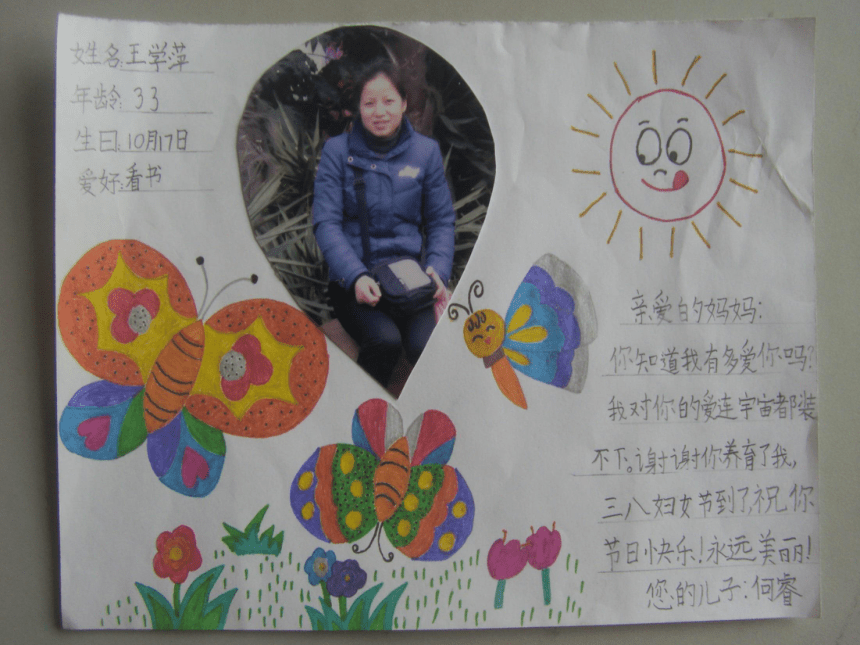 姓名:王学萍
年龄:33
生日:10月17日
爱好:看书
亲爱的妈妈:
你知道我有多爱你吗?
我对你的爱连宇宙都装
不下。谢谢你养育了我,
三八妇女节到了,祝你
节日快乐!永远美丽!
您的儿子:何睿